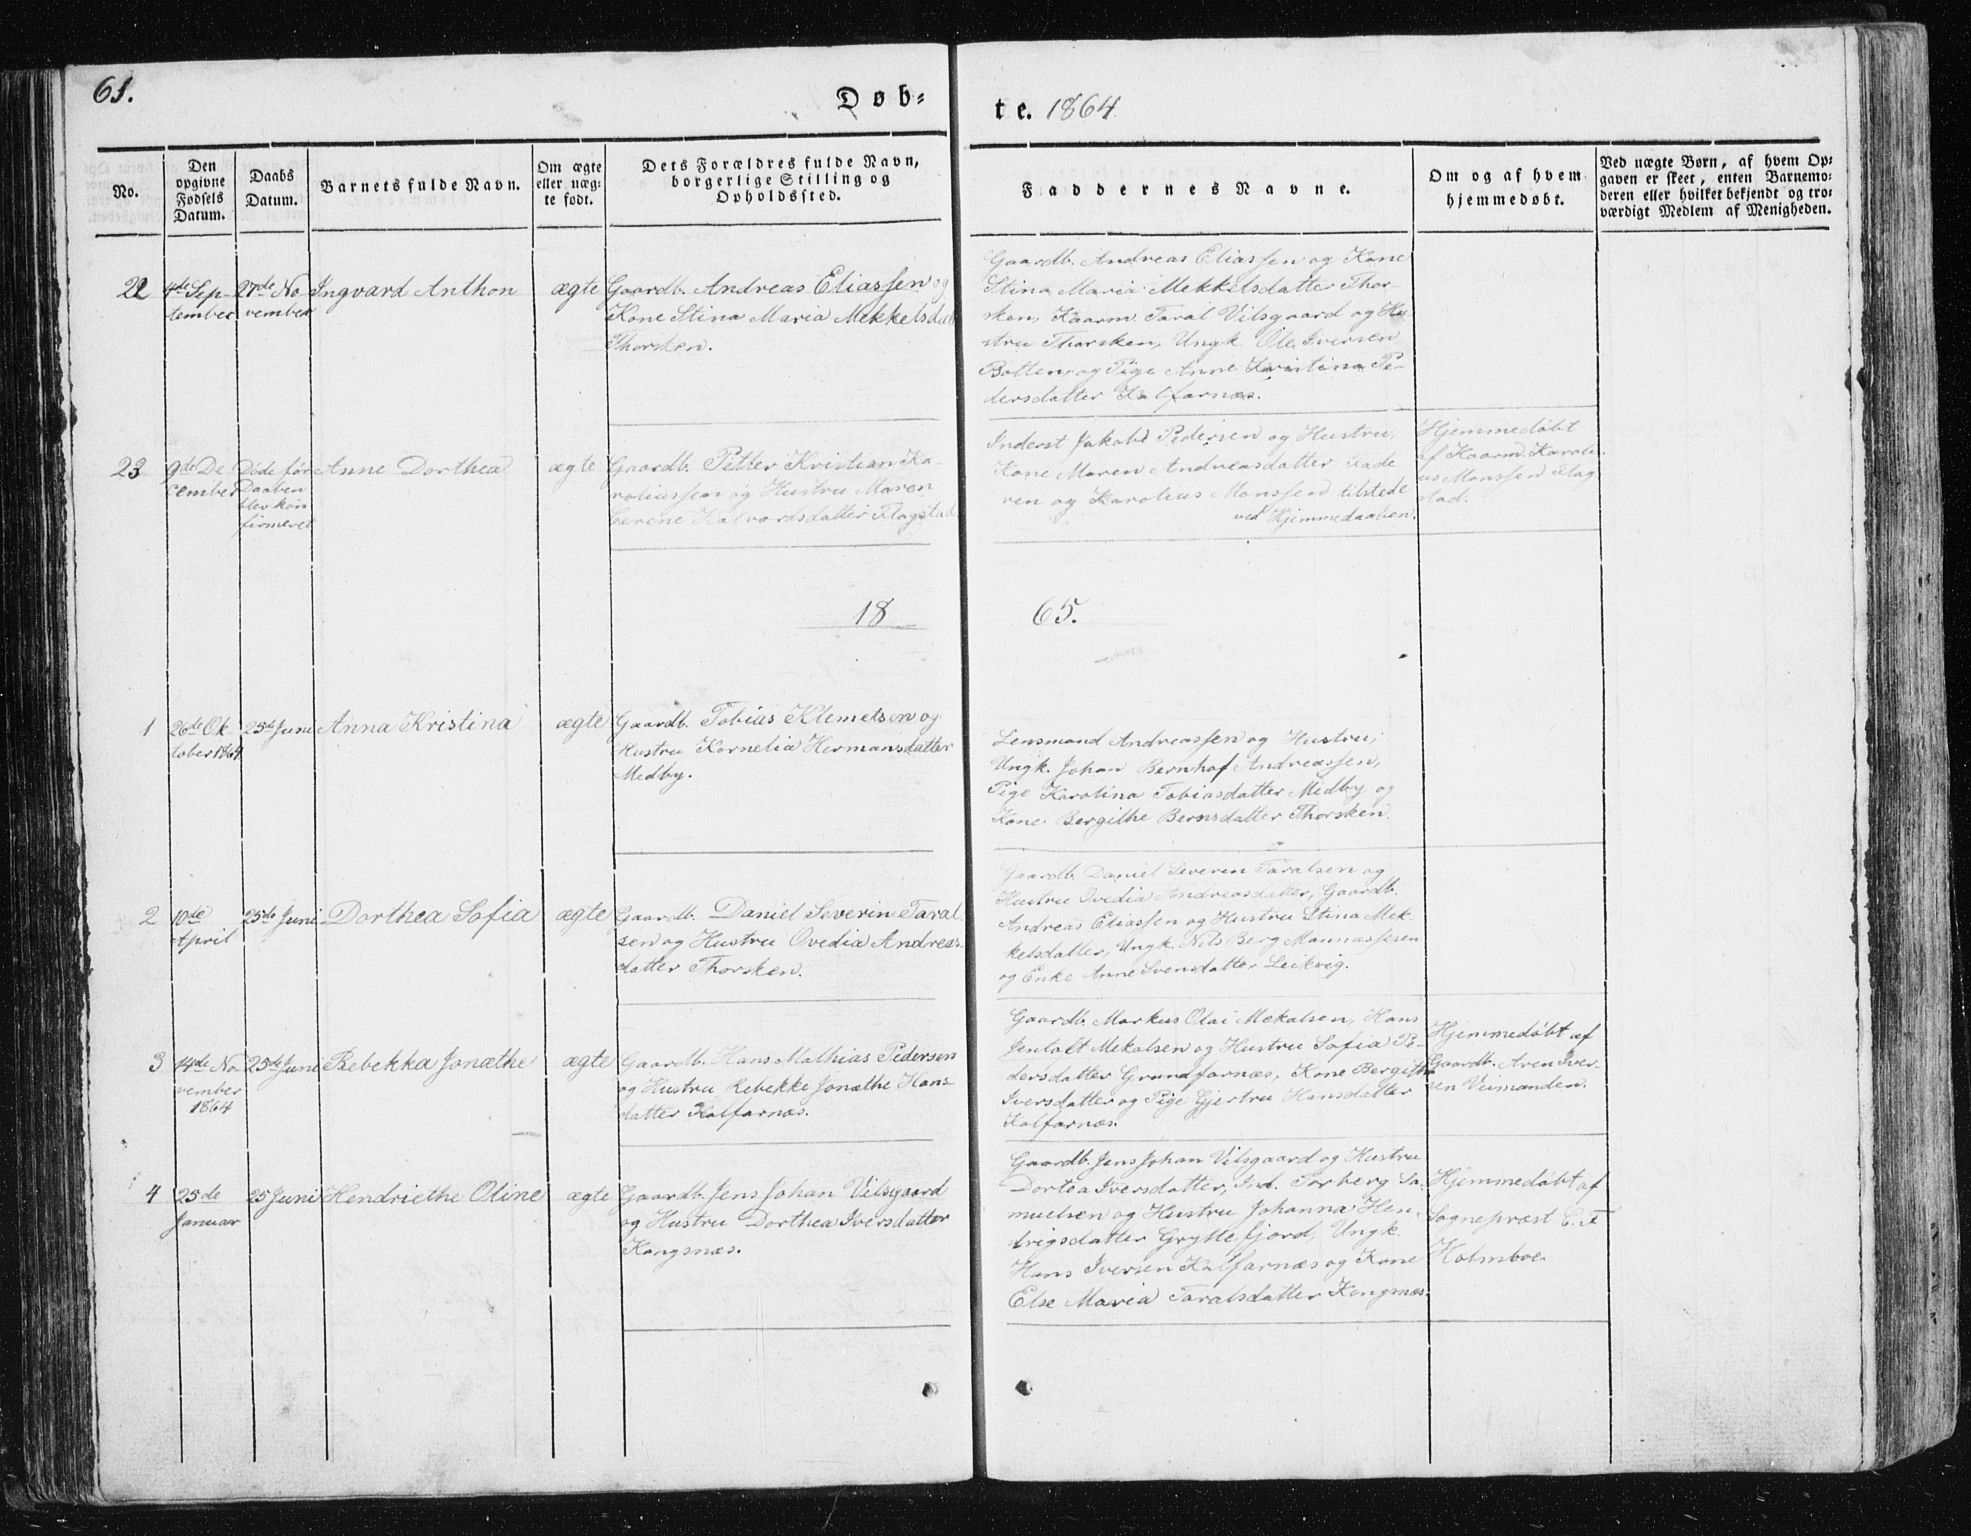 61.
Døb-
te. 1864
No.
Den
opgivne
Fødsels
Datum.
Daabs
Datum.
Barnets fulde Navn.
Om ægte
eller uæg-
te født.
Dets Forældres fulde Navn,
borgerlige Stilling og
Opholdssted.
Faddernes Navne.
Om og af hvem
hjemmedøbt.
Ved uægte Børn, af hvem Op-
gaven er skeet, enten Barnemo-
deren eller hvilket bekjendt og tro-
værdigt Medlem af Menigheden.
22
4de Sep-
tember
27de No-
vember
Ingvard Anthon
ægte
Gaardb. Andreas Eliassen og
Kone Stina Maria Mekkelsdatt
Thorsken.
Gaardb. Andreas Eliassen og Kone
Stina Maria Mekkelsdatter Thor-
sken, Kaarm. Taral Vilsgaard og Hu-
stru Thorsken, Ungk. Ole Iversen
Botten og Pige Anne Kristina Pe-
dersdatter Kalfarnæs.
23
9de De
cember
Døde før
Daaben
blev kon
firmeret
Anne Dorthea
ægte
Gaardb. Petter Kristian Ka-
roliussen og Hustru Maren
Berene Halvordsdatter Flagstad
Inderst Jakob Pedersen og Hustru,
Kone Maren Andreasdatter Fade
ren og Karolius Monssen tilstede
ved Hjemmedaaben.
Hjemmedøbt
af Kaarm. Karoli-
us Monssen Flag
stad.
18
65.
1
26de Ok-
tober 1864
25de Juni
Anna Kristina
ægte
Gaardb. Tobias Klemetsen og
Hustru Kornelia Hermansdatter
Medby.
Lensmand Andreassen og Hustru,
Ungk. Johan Bernhof Andreassen,
Pige Karolina Tobiasdatter Medby og
Kone Bergithe Bernsdatter Thorsken.
2
10de
April
25de Juni
Dorthea Sofia
ægte
Gaardb. Daniel Severin Taral
sen og Hustru Ovedia Andreas-
datter Thorsken.
Gaardb. Daniel Severin Taralsen og
Hustru Ovedia Andreasdatter, Gaardb.
Andreas Eliassen og Hustru Stina Mek-
kelsdatter, Ungk. Nils Berg Mannassesen
og Enke Anne Svensdatter Leikvig.
3
14de No
vember
1864
25de Juni
Rebekka Jonæthe
ægte
Gaardb. Hans Mathias Pedersen
og Hustru Rebekke Jonæthe Hans-
datter Kalfarnæs.
Gaardb. Markus Olai Mekalsen, Hans
Jentoft Mekalsen og Hustru Sofia Pe-
dersdatter Grundfarnæs, Kone Bergithe
Iversdatter og Pige Gjertru Hansdatter
Kalfarnæs.
Hjemmedøbt af
Gaardb. Aren Iver-
sen Veimanden.
4
25de
Januar
25 Juni
Hendriethe Oline
ægte
Gaardb. Jens Johan Vilsgaard
og Hustru Dorthea Iversdatter
Kongsnæs.
Gaardb. Jens Johan Vilsgaard og Hustru
Dortea Iversdatter, Ind. Torberg Sa-
muelsen og Hustru Johanna Hen-
drigsdatter Gryttefjord, Ungk.
Hans Iversen Kalfarnæs og Kone
Else Maria Taralsdatter Kongsnæs.
Hjemmedøbt af
Sognepræst C. F.
Holmboe.